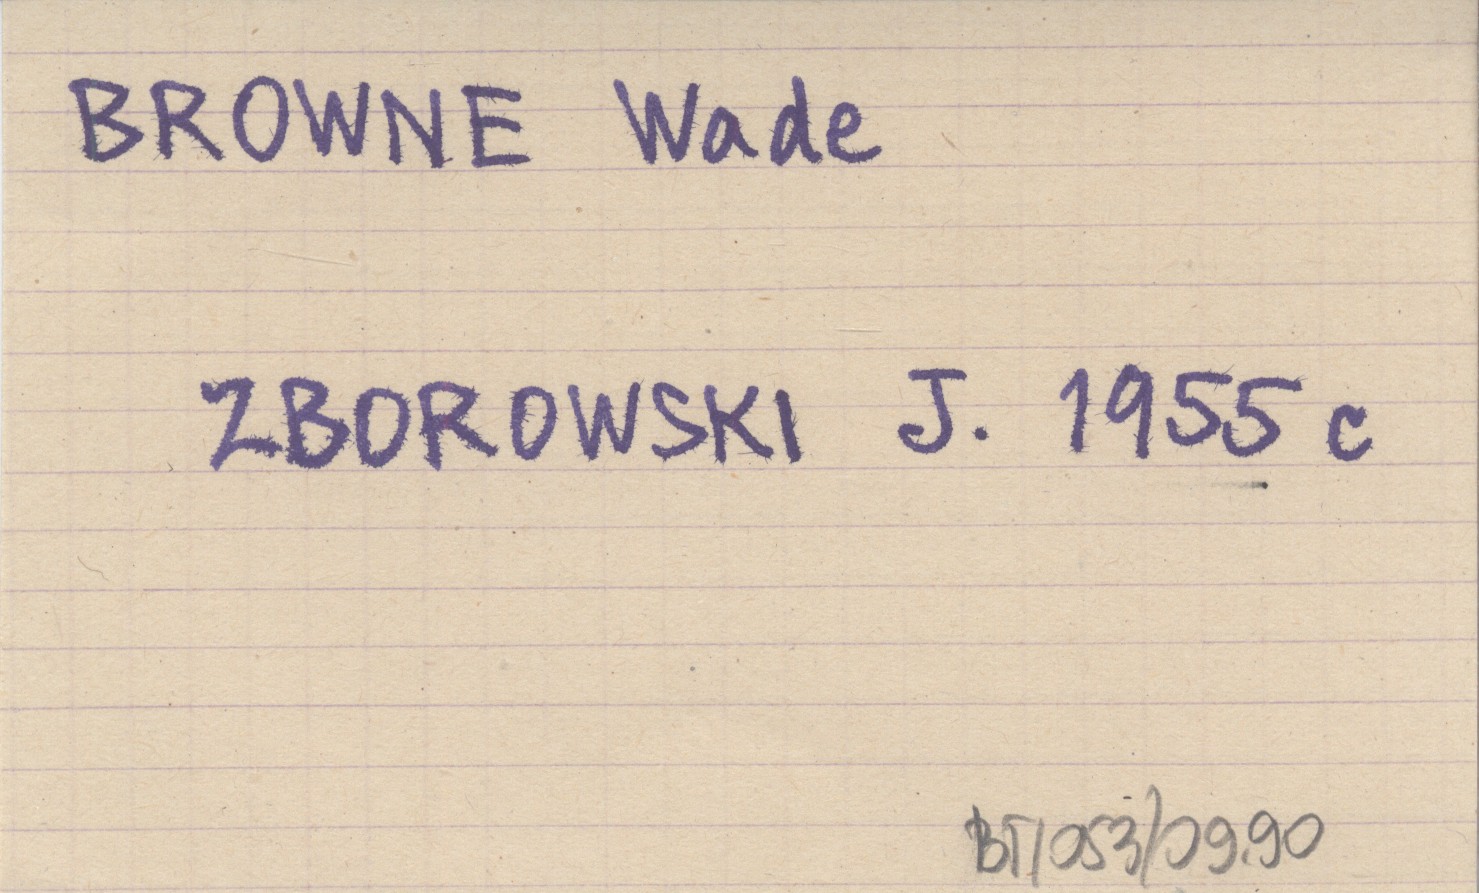 BROWNE Wade
ZBOROWSKI J. 1955 c
BT/053/09.90